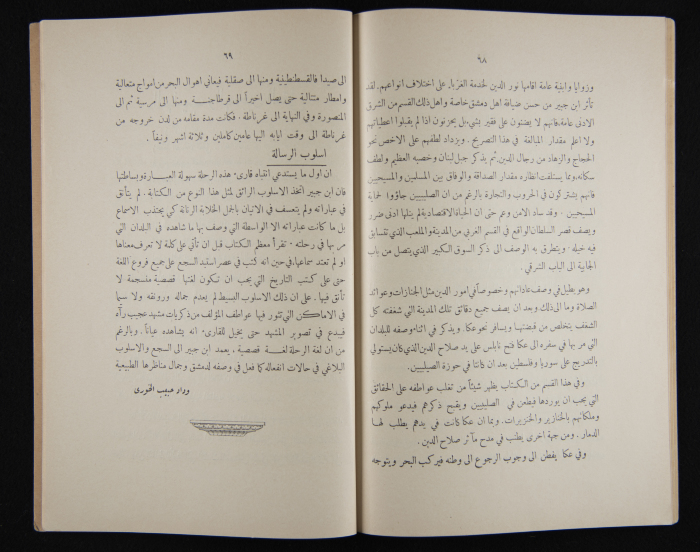 ٦٨
وزوايا وابنية عامة اقامها نور الدين لخدمة الغرباء على اختلاف انواعهم. لقد
تأثر ابن جبير من حسن ضيافة اهل دمشق خاصة واهل ذلك القسم من الشرق
الادنى عامة، فانهم لا يضنون على فقير بشيء بل يحزنون اذا لم يقبلوا اعطياتهم
ولا اعلم مقدار المبالغة في هذا التصريح. ويزداد لطفهم على الاخص نحو
الحجاج والزهاد من رجال الدين. ثم يذكر جبل لبنان وخصبه العظيم ولطف
سكانه ومما يستلفت انظاره مقدار الصداقة والوفاق بين المسلمين والمسيحيين
فانهم يشتركون في الحروب والتجارة بالرغم من ان الصليبيين جاؤوا لحماية
المسيحيين. وقد ساد الامن وعم حتى ان الحياة الاقتصادية لم ينلها ادنى ضرر
ويصف قصر السلطان الواقع في القسم الغربي من المدينة والملعب الذي تتسابق
فيه خيله. ويتطرق به الوصف الى ذكر السوق الكبير الذي يتصل من باب
الجابية الى الباب الشرقي.
وهو يطيل في وصف عاداتهم وخصوصاً في امور الدين مثل الجنازات وعوائد
الصلاة وما الى ذلك وبعد ان يصف جميع دقائق تلك المدينة التي شغفته كل
الشغف يتخلص من قبضتها ويسافر نحو عكا. ويذكر في اثناء وصفه للبلدان
التي مر بها في سفره الى عكا فتح نابلس على يد صلاح الدين الذي كان يستولي
بالتدريج على سوريا وفلسطين بعد ان كانتا في حوزة الصليبيين.
وفي هذا القسم من الكتاب يظهر شيئاً من تغلب عواطفه على الحقائق
التي يجب ان يوردها فيطعن في الصليبيين ويقبح ذكرهم فيدعو ملوكهم
وملكاتهم بالخنازير والخنزيرات. وبما ان عكا كانت في يدهم يطلب لهـا
الدمار. ومن جهة اخرى يطنب في مدح مآثر صلاح الدين.
وفي عكا يفطن الى وجوب الرجوع الى وطنه فيركب البحر ويتوجه
٦٩
الى صيدا فالقسطنطينية ومنها الى صقلية فيعاني اهوال البحر من امواج متعالية
وامطار متتالية حتى يصل اخيراً الى قرطاجنـة ومنها الى مرسية ثم الى
المنصورة وفي النهاية الى غرناطة. فكانت مدة مقامه من لدن خروجه من
غرناطة الى وقت ايابه اليها عامين كاملين وثلاثة اشهر ونيفاً.
اسلوب الرسالة
ان اول ما يستدعي انتباه قارىء هذه الرحلة سهولة العبـارة وبساطتها
فان ابن جبير اتخذ الاسلوب الرائق لمثل هذا النوع من الكتابة. لم يتأنق
في عباراته ولم يتعسف في الاتيان بالجمل الخلابة الرنانة كي يجتذب الاسماع
بل ما كانت عباراته الا الواسطة التي وصف بها ما شاهده في البلدان التي
مر بها في رحلته. تقرأ معظم الكتاب قبل ان تأتي على كلمة لا تعرف معناها
او لم تعتد سماعها، في حين انه كتب في عصر استبد السجع على جميع فروع اللغة
حتى على كتب التاريخ التي يجب ان تكون لغتها قصصية منسجمة لا
تأنق فيها. على ان ذلك الاسلوب البسيط لم يعدم جماله ورونقه ولا سيما
في الاماكن التي تثور فيها عواطف المؤلف من ذكريات مشهد عجيب رآه
فيبدع في تصوير المشهد حتى يخيل للقارىء انه يشاهده عياناً. وبالرغم
من ان لغة الرحلة لغـة قصصية. يعمد ابن جبير الى السجع والاسلوب
البلاغي في حالات انفعاله كما فعل في وصفه لدمشق وجمال مناظرها الطبيعية
وداد حبيب الخوري